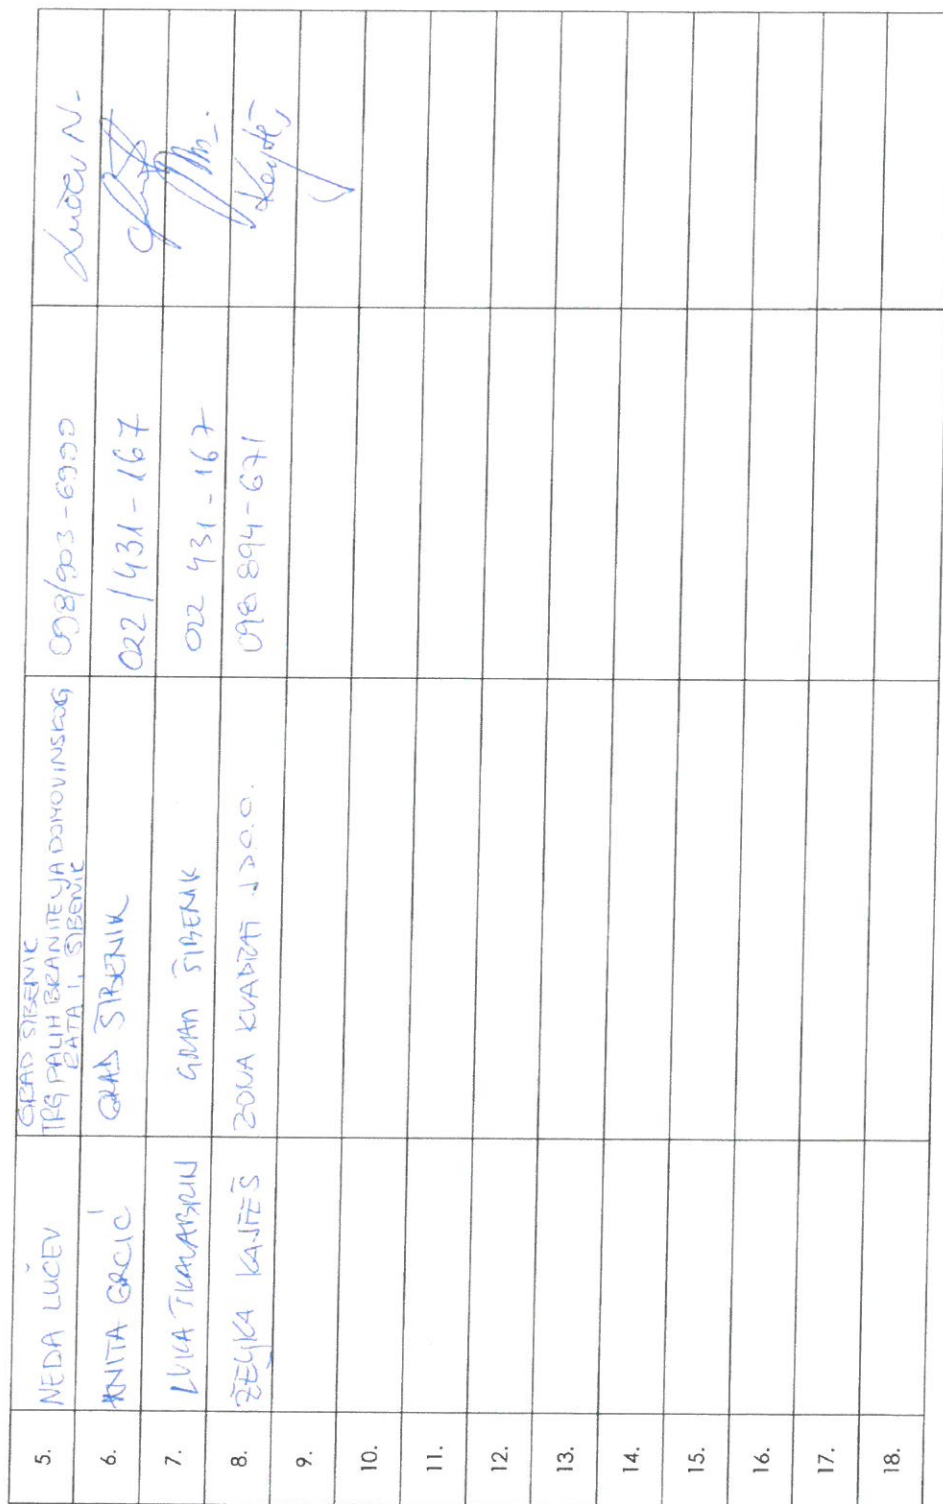 5. NEDA LUČEV GRAD ŠIBENIK
TRG PALIH BRANITELJA DOMOVINSKOG
RATA 1, ŠIBENIK 098/903-6900 Lučev N.
6. ANITA GRCIĆ GRAD ŠIBENIK 022/431-167
7. LUKA GRAD ŠIBENIK 022 431-167
8. ŽELJKA ZONA KVADRAT J.D.O.O. 098 894-671
9.
10.
11.
12.
13.
14.
15.
16.
17.
18.